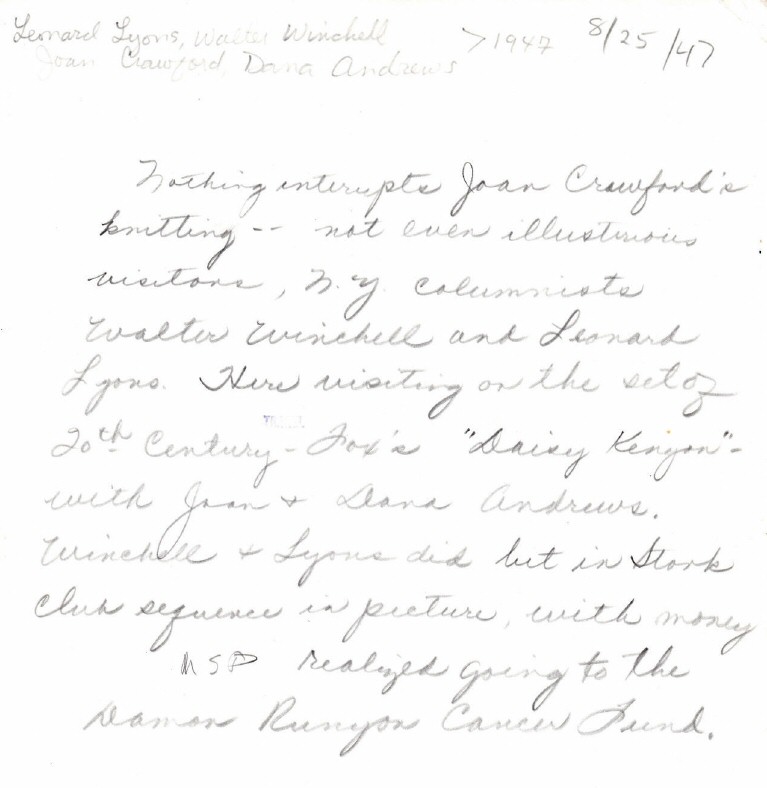 Leonard Lyons, Walter Winchell
Joan Crawford, Dana Andrews
>1947 8/25/47
Nothing interupts Joan Crawford's
knitting -- not even illustrious
visitors, N.Y. columnists
Walter Winchell and Leonard
Lyons. Here visiting on the set of
20th Century-Fox's "Daisy Kenyon"-
with Joan + Dana Andrews.
Winchell + Lyons did bit in Stork
Club sequence in picture, with money
NSP realized going to the
Damon Runyon Cancer Fund.